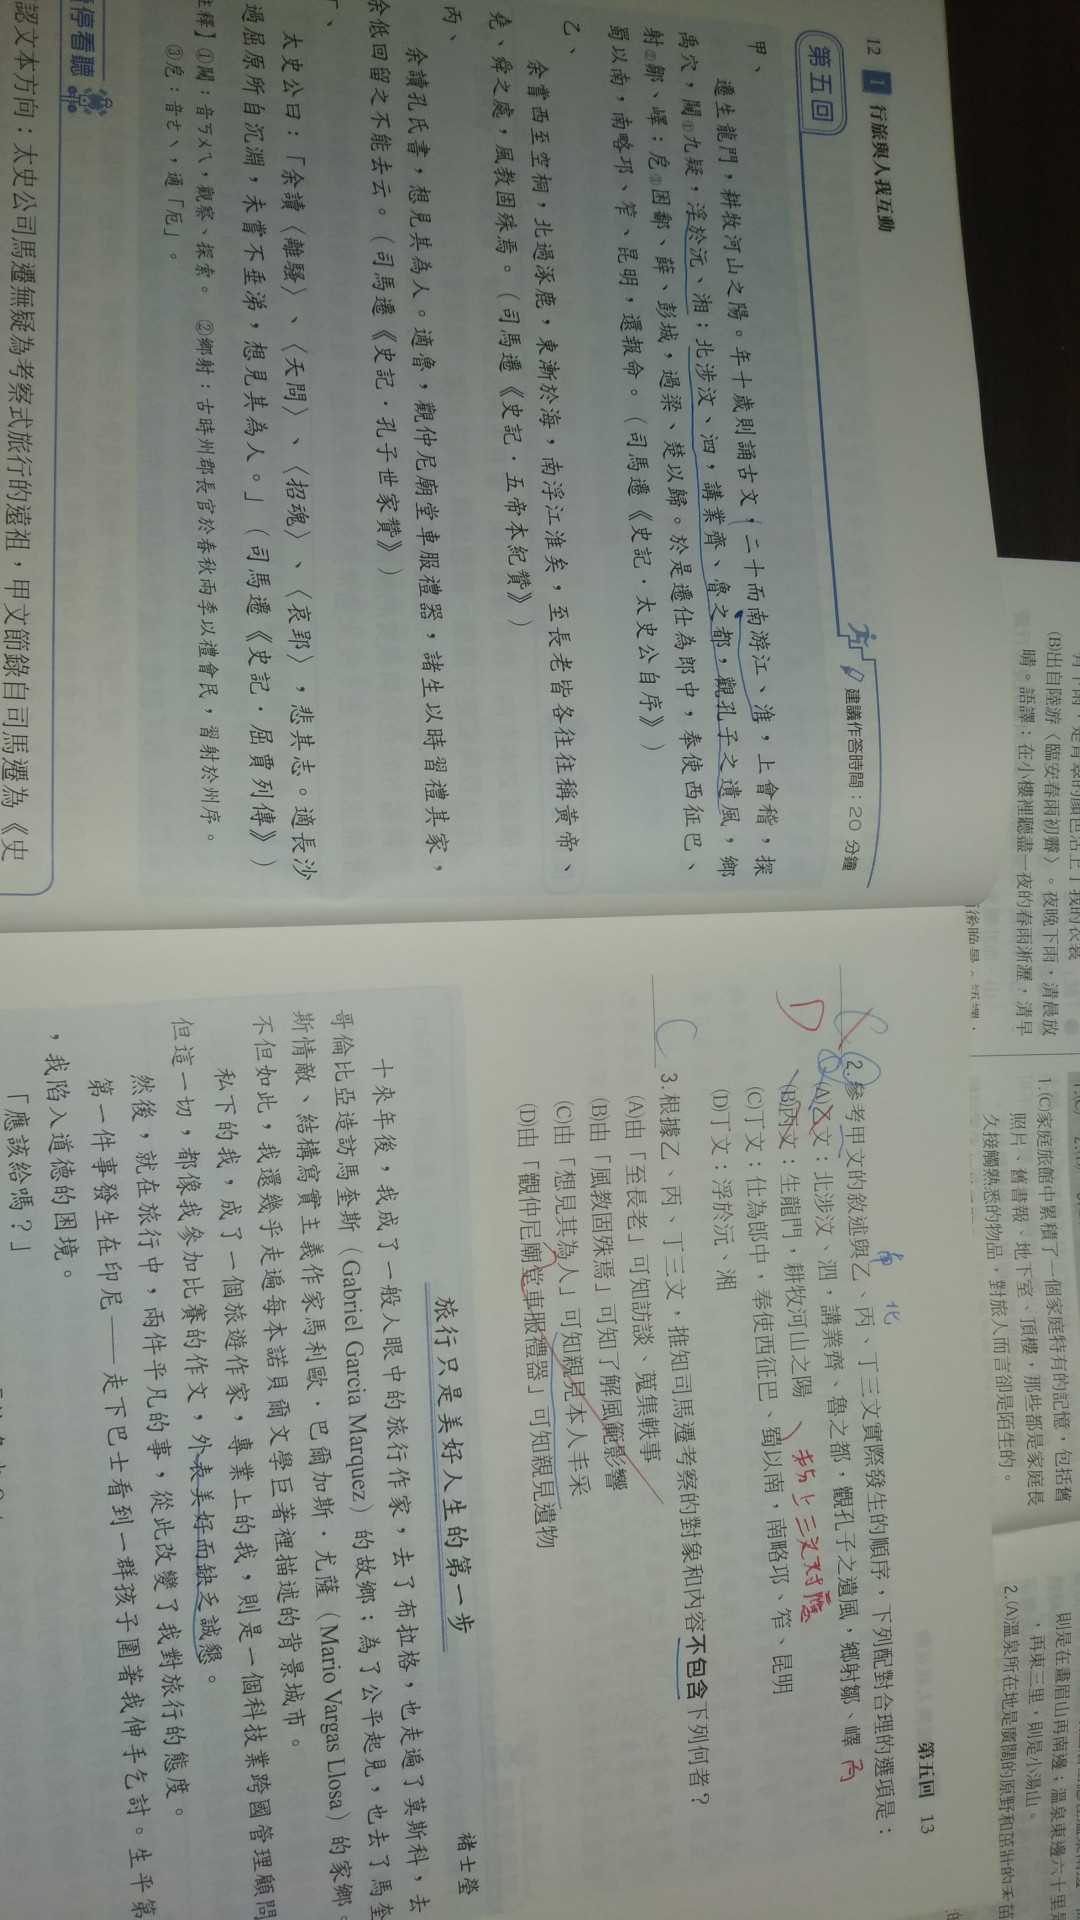 12 1 行旅與人我互動
第五回
建議作答時間：20 分鐘
甲、
遷生龍門，耕牧河山之陽。年十歲則誦古文，二十而南游江、淮，上會稽，探
禹穴，闚①九疑，浮於沅、湘；北涉汶、泗，講業齊、魯之都，觀孔子之遺風，鄉
射②鄒、嶧；戹③困鄱、薛、彭城，過梁、楚以歸。於是遷仕為郎中，奉使西征巴、
蜀以南，南略邛、笮、昆明，還報命。（司馬遷《史記．太史公自序》）
乙、
余嘗西至空桐，北過涿鹿，東漸於海，南浮江淮矣，至長老皆各往往稱黃帝、
堯、舜之處，風教固殊焉。（司馬遷《史記．五帝本紀贊》）
丙、
余讀孔氏書，想見其為人。適魯，觀仲尼廟堂車服禮器，諸生以時習禮其家，
余低回留之不能去云。（司馬遷《史記．孔子世家贊》）
、
太史公曰：「余讀〈離騷〉、〈天問〉、〈招魂〉、〈哀郢〉，悲其志。適長沙
過屈原所自沉淵，未嘗不垂涕，想見其為人。」（司馬遷《史記．屈賈列傳》）
注釋】①闚：音ㄎㄨㄟ，觀察、探索。　②鄉射：古時州郡長官於春秋兩季以禮會民，習射於州序。
③戹：音ㄜˋ，通「厄」。
停看聽
認文本方向：太史公司馬遷無疑為考察式旅行的遠祖，甲文節錄自司馬遷為《史
第五回 13
C
D
2.參考甲文的敘述與乙、丙、丁三文實際發生的順序，下列配對合理的選項是：
南 北
(A)乙文：北涉汶、泗，講業齊、魯之都，觀孔子之遺風，鄉射鄒、嶧 丙
(B)丙文：生龍門，耕牧河山之陽
(C)丁文：仕為郎中，奉使西征巴、蜀以南，南略邛、笮、昆明
(D)丁文：浮於沅、湘
C
3.根據乙、丙、丁三文，推知司馬遷考察的對象和內容不包含下列何者？
(A)由「至長老」可知訪談、蒐集軼事
(B)由「風教固殊焉」可知了解風範影響
(C)由「想見其為人」可知親見本人丰采
(D)由「觀仲尼廟堂車服禮器」可知親見遺物
旅行只是美好人生的第一步
褚士瑩
十來年後，我成了一般人眼中的旅行作家，去了布拉格，也走遍了莫斯科，去
哥倫比亞造訪馬奎斯（Gabriel Garcia Marquez）的故鄉；為了公平起見，也去了馬奎
斯情敵、結構寫實主義作家馬利歐．巴爾加斯．尤薩（Mario Vargas Llosa）的家鄉。
不但如此，我還幾乎走遍每本諾貝爾文學巨著裡描述的背景城市。
私下的我，成了一個旅遊作家，專業上的我，則是一個科技業跨國管理顧問
但這一切，都像我參加比賽的作文，外表美好而缺乏誠懇。
然後，就在旅行中，兩件平凡的事，從此改變了我對旅行的態度。
第一件事發生在印尼——走下巴士看到一群孩子圍著我伸手乞討。生平第
，我陷入道德的困境。
「應該給嗎？」
(B)出自陸游〈臨安春雨初霽〉。夜晚下雨，清晨放
晴。語譯：在小樓裡聽盡一夜的春雨淅瀝，清早
1.(C)家庭旅館中累積了一個家庭特有的記憶，包括舊
照片、舊書報、地下室、頂樓，那些都是家庭長
久接觸熟悉的物品，對旅人而言卻是陌生的。
則是在畫眉山再南邊；溫泉東邊六十里
，再東三里，則是小湯山。
2.(A)溫泉所在地是廣闊的原野和茁壯的禾苗